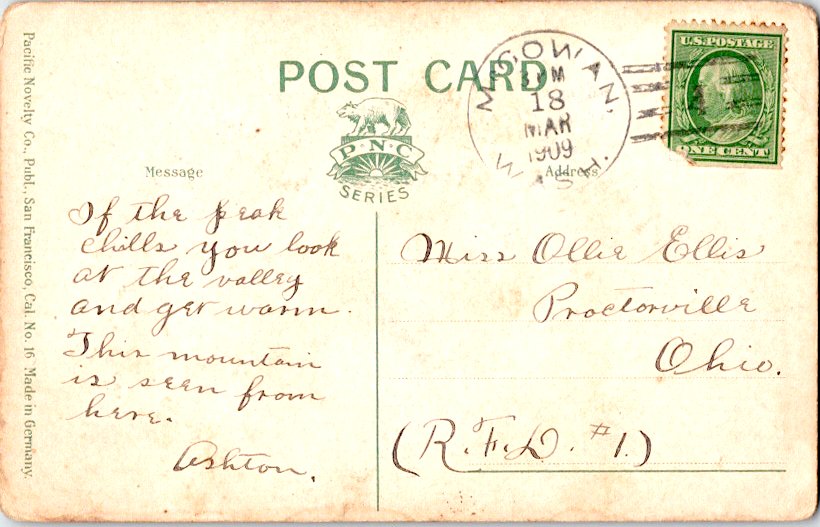 POST CARD
P-N-C
SERIES
Message
Address
McGOWAN,
PM
18
MAR
1909
WASH.
U.S. POSTAGE
ONE CENT
If the peak
chills you look
at the valley
and get warm.
This mountain
is seen from
here.
Ashton.
Miss Ollie Ellis
Proctorville
Ohio.
(R.F.D. #1.)
Pacific Novelty Co., Publ., San Francisco, Cal. No. 16 Made in Germany.